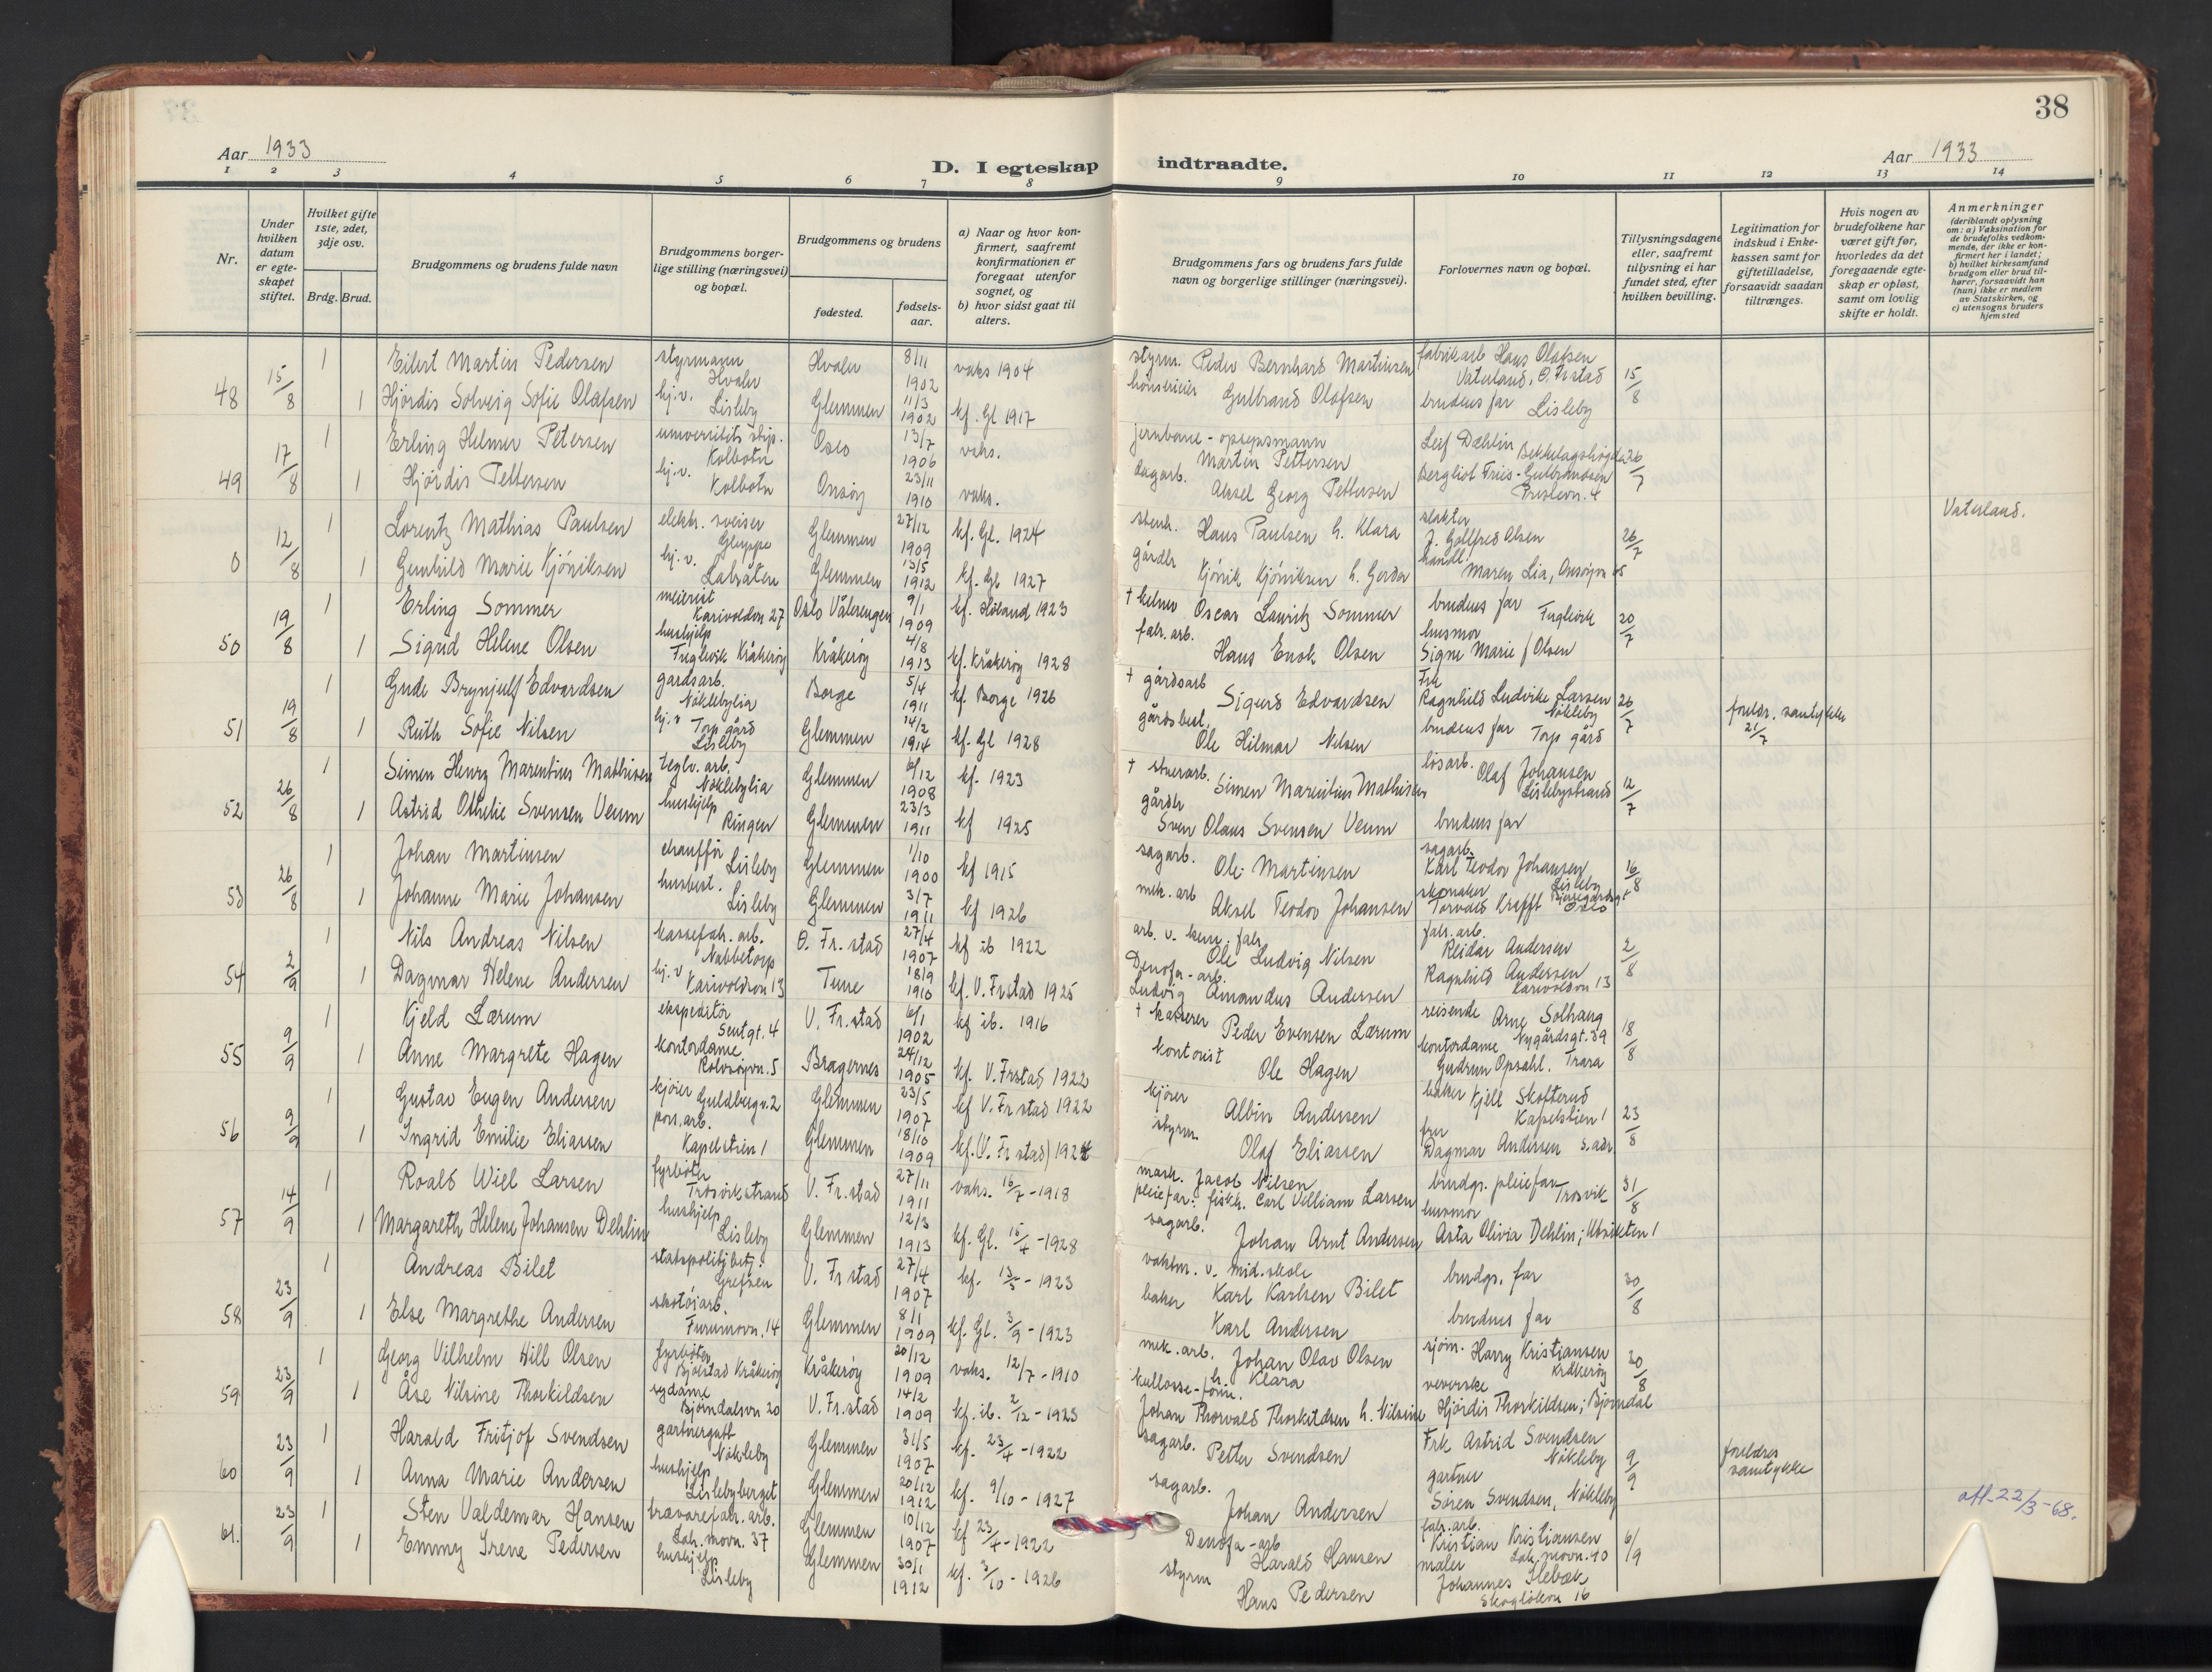 38
Aar 1933
D. I egteskap indtraadte.
Aar 1933
1 2 3 4 5 6 7 8 9 10 11 12 13 14
Nr.
Under hvilken datum er egteskapet stiftet.
Hvilket gifte 1ste, 2det, 3dje osv.
Brdg. Brud.
Brudgommens og brudens fulde navn
Brudgommens borgerlige stilling (næringsvei) og bopæl.
Brudgommens og brudens
fødested.
fødselsaar.
a) Naar og hvor konfirmert, saafremt konfirmationen er foregaat utenfor sognet, og
b) hvor sidst gaat til alters.
Brudgommens fars og brudens fars fulde navn og borgerlige stillinger (næringsvei).
Forlovernes navn og bopæl.
Tillysningsdagene eller, saafremt tillysning ei har fundet sted, efter hvilken bevilling.
Legitimation for indskud i Enkekassen samt for giftetilladelse, forsaavidt saadan tiltrænges.
Hvis nogen av brudefolkene har været gift før, hvorledes da det foregaaende egteskap er opløst, samt om lovlig skifte er holdt.
Anmerkninger
(deriblandt oplysning om: a) Vaksination for de brudefolks vedkommende, der ikke er konfirmert her i landet; b) hvilket kirkesamfund brudgom eller brud tilhører, forsaavidt han (hun) ikke er medlem av Statskirken, og c) utensogns bruders hjemsted
48 15/8 1 Eilert Martin Pedersen styrmann Hvaler Hvaler 8/11 1902 vaks 1904 styrm. Peder Bernhard Martinsen fabrikarb Hans Olafsen Vaterland, Ø. Frstad 15/8
1 Hjördis Solveig Sofie Olafsen hj.v. Lisleby Glemmen 11/3 1902 kf. Gl 1917 hönserieier Gulbrand Olafsen brudens far Lisleby
49 17/8 1 Erling Helmer Petersen universitets stip. Kolbotn Oslo 13/7 1906 vaks. jernbane-opsynsmann Martin Pettersen Leif Dæhlin Bekkelagshögda 26/7
1 Hjördis Pettersen hj.v. Kolbotn Onsöy 23/11 1910 vaks. dagarb. Aksel Georg Pettersen Bergliot Friis-Gulbrandsen
0 12/8 1 Lorentz Mathias Paulsen elektr. sveiser Gluppe Glemmen 27/12 1909 kf. Gl. 1924 stenh. Hans Paulsen h. Klara slakter J. Gottfred Olsen 26/7 Vaterland.
1 Gunhild Marie Kjöniksen hj.v. Labråten Glemmen 13/5 1912 kf. Gl 1927 gårdbr Kjönik Kjöniksen h. Gerda handl. Maren Lia, Onsöyvn 25
50 19/8 1 Erling Sommer meierist Karivoldvn 27 Oslo Vålerengen 9/1 1909 kf. Höland 1923 † kelner Oscar Lauritz Sommer brudens far Fuglevik 20/7
1 Sigrid Helene Olsen hushjelp Fuglevik Kråkeröy Kråkeröy 4/8 1913 kf. Kråkeröy 1928 fabr.arb. Hans Enok Olsen husmor Signe Marie f Olsen
51 19/8 1 Gude Brynjulf Edvardsen gårdsarb. Nöklebylia Borge 5/4 1911 kf. Borge 1926 † gårdsarb Sigurd Edvardsen Frk Ragnhild Ludvike Larsen Nökleby 26/7 foreldr. samtykke 21/7
1 Ruth Sofie Nilsen hj.v Torp gård Lisleby Glemmen 14/2 1914 kf. Gl 1928 gårdsbest. Ole Hilmar Nilsen brudens far Torp gård
52 26/8 1 Simen Henry Marentius Mathisen teglv. arb. Nöklebylia Glemmen 6/12 1908 kf. 1923 † stuerarb. Simen Marentius Mathisen lösarb. Olaf Johansen Lislebystrand 12/7
1 Astrid Othilie Svensen Veum hushjelp Ringen Glemmen 23/3 1911 kf 1925 gårdbr Sven Olaus Svensen Veum brudens far
53 26/8 1 Johan Martinsen chaufför Lisleby Glemmen 1/10 1900 kf 1915 sagarb. Ole Martinsen sagarb. Karl Teodor Johansen Lisleby 16/8
1 Johanne Marie Johansen husbest. Lisleby Glemmen 3/7 1911 kf 1926 mek. arb Aksel Teodor Johansen skomaker Torvald Krafft Oslo
54 2/9 1 Nils Andreas Nilsen kassefabr. arb. Nabbetorp Ö. Fr. stad 27/4 1907 kf ib 1922 arb. v. kem. fabr Ole Ludvig Nilsen fabr. arb. Reidar Andersen 2/8
1 Dagmar Helene Andersen hj.v Karivoldvn 13 Tune 18/9 1910 kf. V. Frstad 1925 Denofa-arb. Ludvig Amandus Andersen Ragnhild Andersen Karivoldvn 13
55 9/9 1 Kjeld Lærum ekspeditör Sentgt. 4 V. Fr. stad 6/1 1902 kf ib. 1916 † kasserer Peder Evensen Lærum reisende Arne Solhaug Nygårdsgt. 39 18/8
1 Anne Margrete Hagen kontordame Rolvsöyvn. 5 Bragernes 24/12 1905 kf. V. Frstad 1922 kontorist Ole Hagen kontordame Gudrun Opsahl, Trara
56 9/9 1 Gustav Eugen Andersen kjörer Guldbergv. 2 Glemmen 23/5 1907 kf V. Fr stad 1922 kjörer Albin Andersen baker Kjell Skolterud Kapelstien 1 23/8
1 Ingrid Emilie Eliassen pors.arb. Kapelstien 1 Glemmen 18/10 1909 kf. (V. Fr stad) 1924 styrm. Olaf Eliassen fru Dagmar Andersen s. adr
57 14/9 1 Roald Wiel Larsen fyrböter Trosvikstrand V. Fr. stad 27/11 1911 vaks. 16/7-1918 mask. Jacob Nilsen pleiefar: fiskh. Carl Villiam Larsen brudgs. pleiefar Trosvik 31/8
1 Margareth Helene Johansen Dehlin hushjelp Lisleby Glemmen 12/3 1913 kf. Gl. 15/4-1928 sagarb. Johan Arnt Andersen husmor Asta Olivia Dehlin; Utsikten 1
58 23/9 1 Andreas Bilet statspolitibetj. Grefsen V. Fr stad 27/4 1907 kf. 13/5-1923 vaktm. v. mid. skole Karl Karlsen Bilet brudgs. far 30/8
1 Else Margrethe Andersen skotöiarb. Furumovn. 14 Glemmen 8/1 1909 kf. Gl. 3/9-1923 baker Karl Andersen brudens far
59 23/9 1 Georg Vilhelm Hill Olsen fyrböter Björstad Kråkeröy Kråkeröy 20/12 1909 vaks. 12/7-1910 mek. arb. Johan Olav Olsen h Klara sjöm. Harry Kristiansen Kråkeröy 30/8
1 Åse Nilsine Thorkildsen sydame Björndalsvn 20 V. Fr. stad 14/2 1909 kf. ib. 2/12-1923 kullosse-form. Johan Thorvald Thorkildsen h. Nilsine veverske Hjördis Thorkildsen; Björndal
60 23/9 1 Harald Fritjof Svendsen gartnergutt Nökleby Glemmen 31/5 1907 kf. 23/4-1922 sagarb. Petter Svendsen Frk Astrid Svendsen Nökleby 9/9 foreldres samtykke
1 Anna Marie Andersen hushjelp Lislebyberget Glemmen 20/12 1912 kf. 9/10-1927 sagarb. Johan Andersen gartner Sören Svendsen, Nökleby
61. 23/9 1 Sten Valdemar Hansen trævarefabr. arb. Lah. movn. 37 Glemmen 10/12 1907 kf 23/4-1922 Denofa-arb Harald Hansen fabr. arb. Kristian Kristiansen Lah. movn. 40 6/9 att. 22/3-68.
1 Emmy Irene Pedersen hushjelp Lisleby Glemmen 30/1 1912 kf. 3/10-1926 styrm Hans Pedersen maler Johannes Slebak